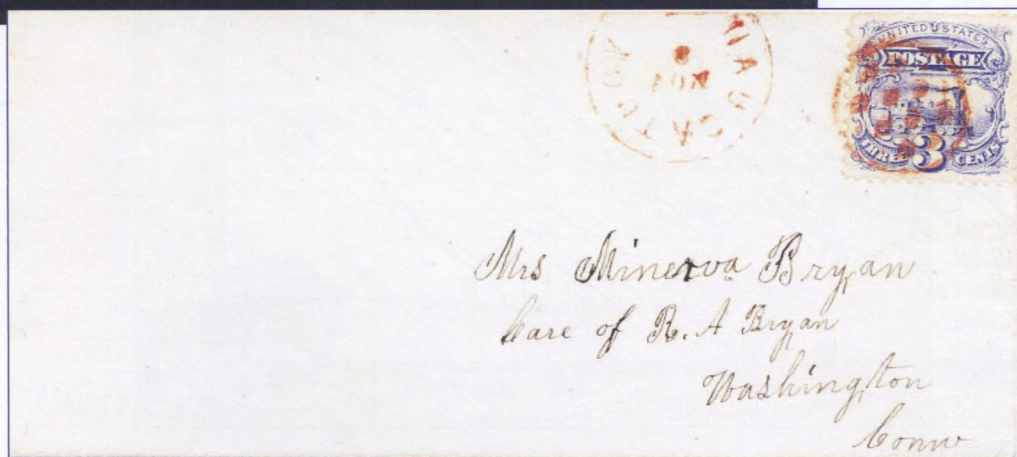 NAUGATUCK
NOV
UNITED STATES
POSTAGE
THREE 3 CENTS
Mrs Minerva Bryan
Care of R. A Bryan
Washington
Conn